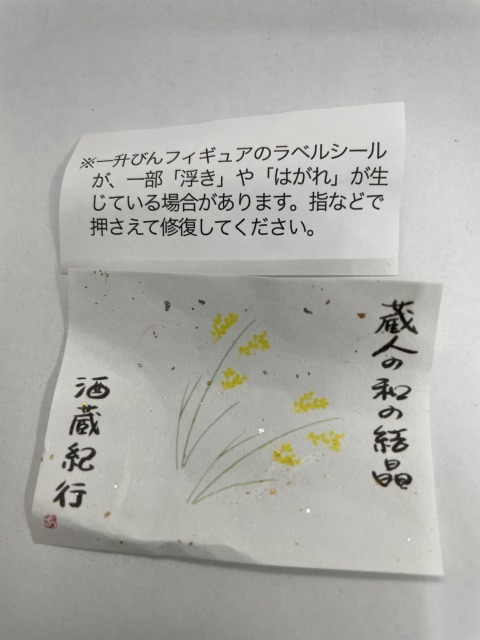 ※一升びんフィギュアのラベルシール
が、一部「浮き」や「はがれ」が生
じている場合があります。指などで
押さえて修復してください。
蔵人の和の結晶
酒蔵紀行